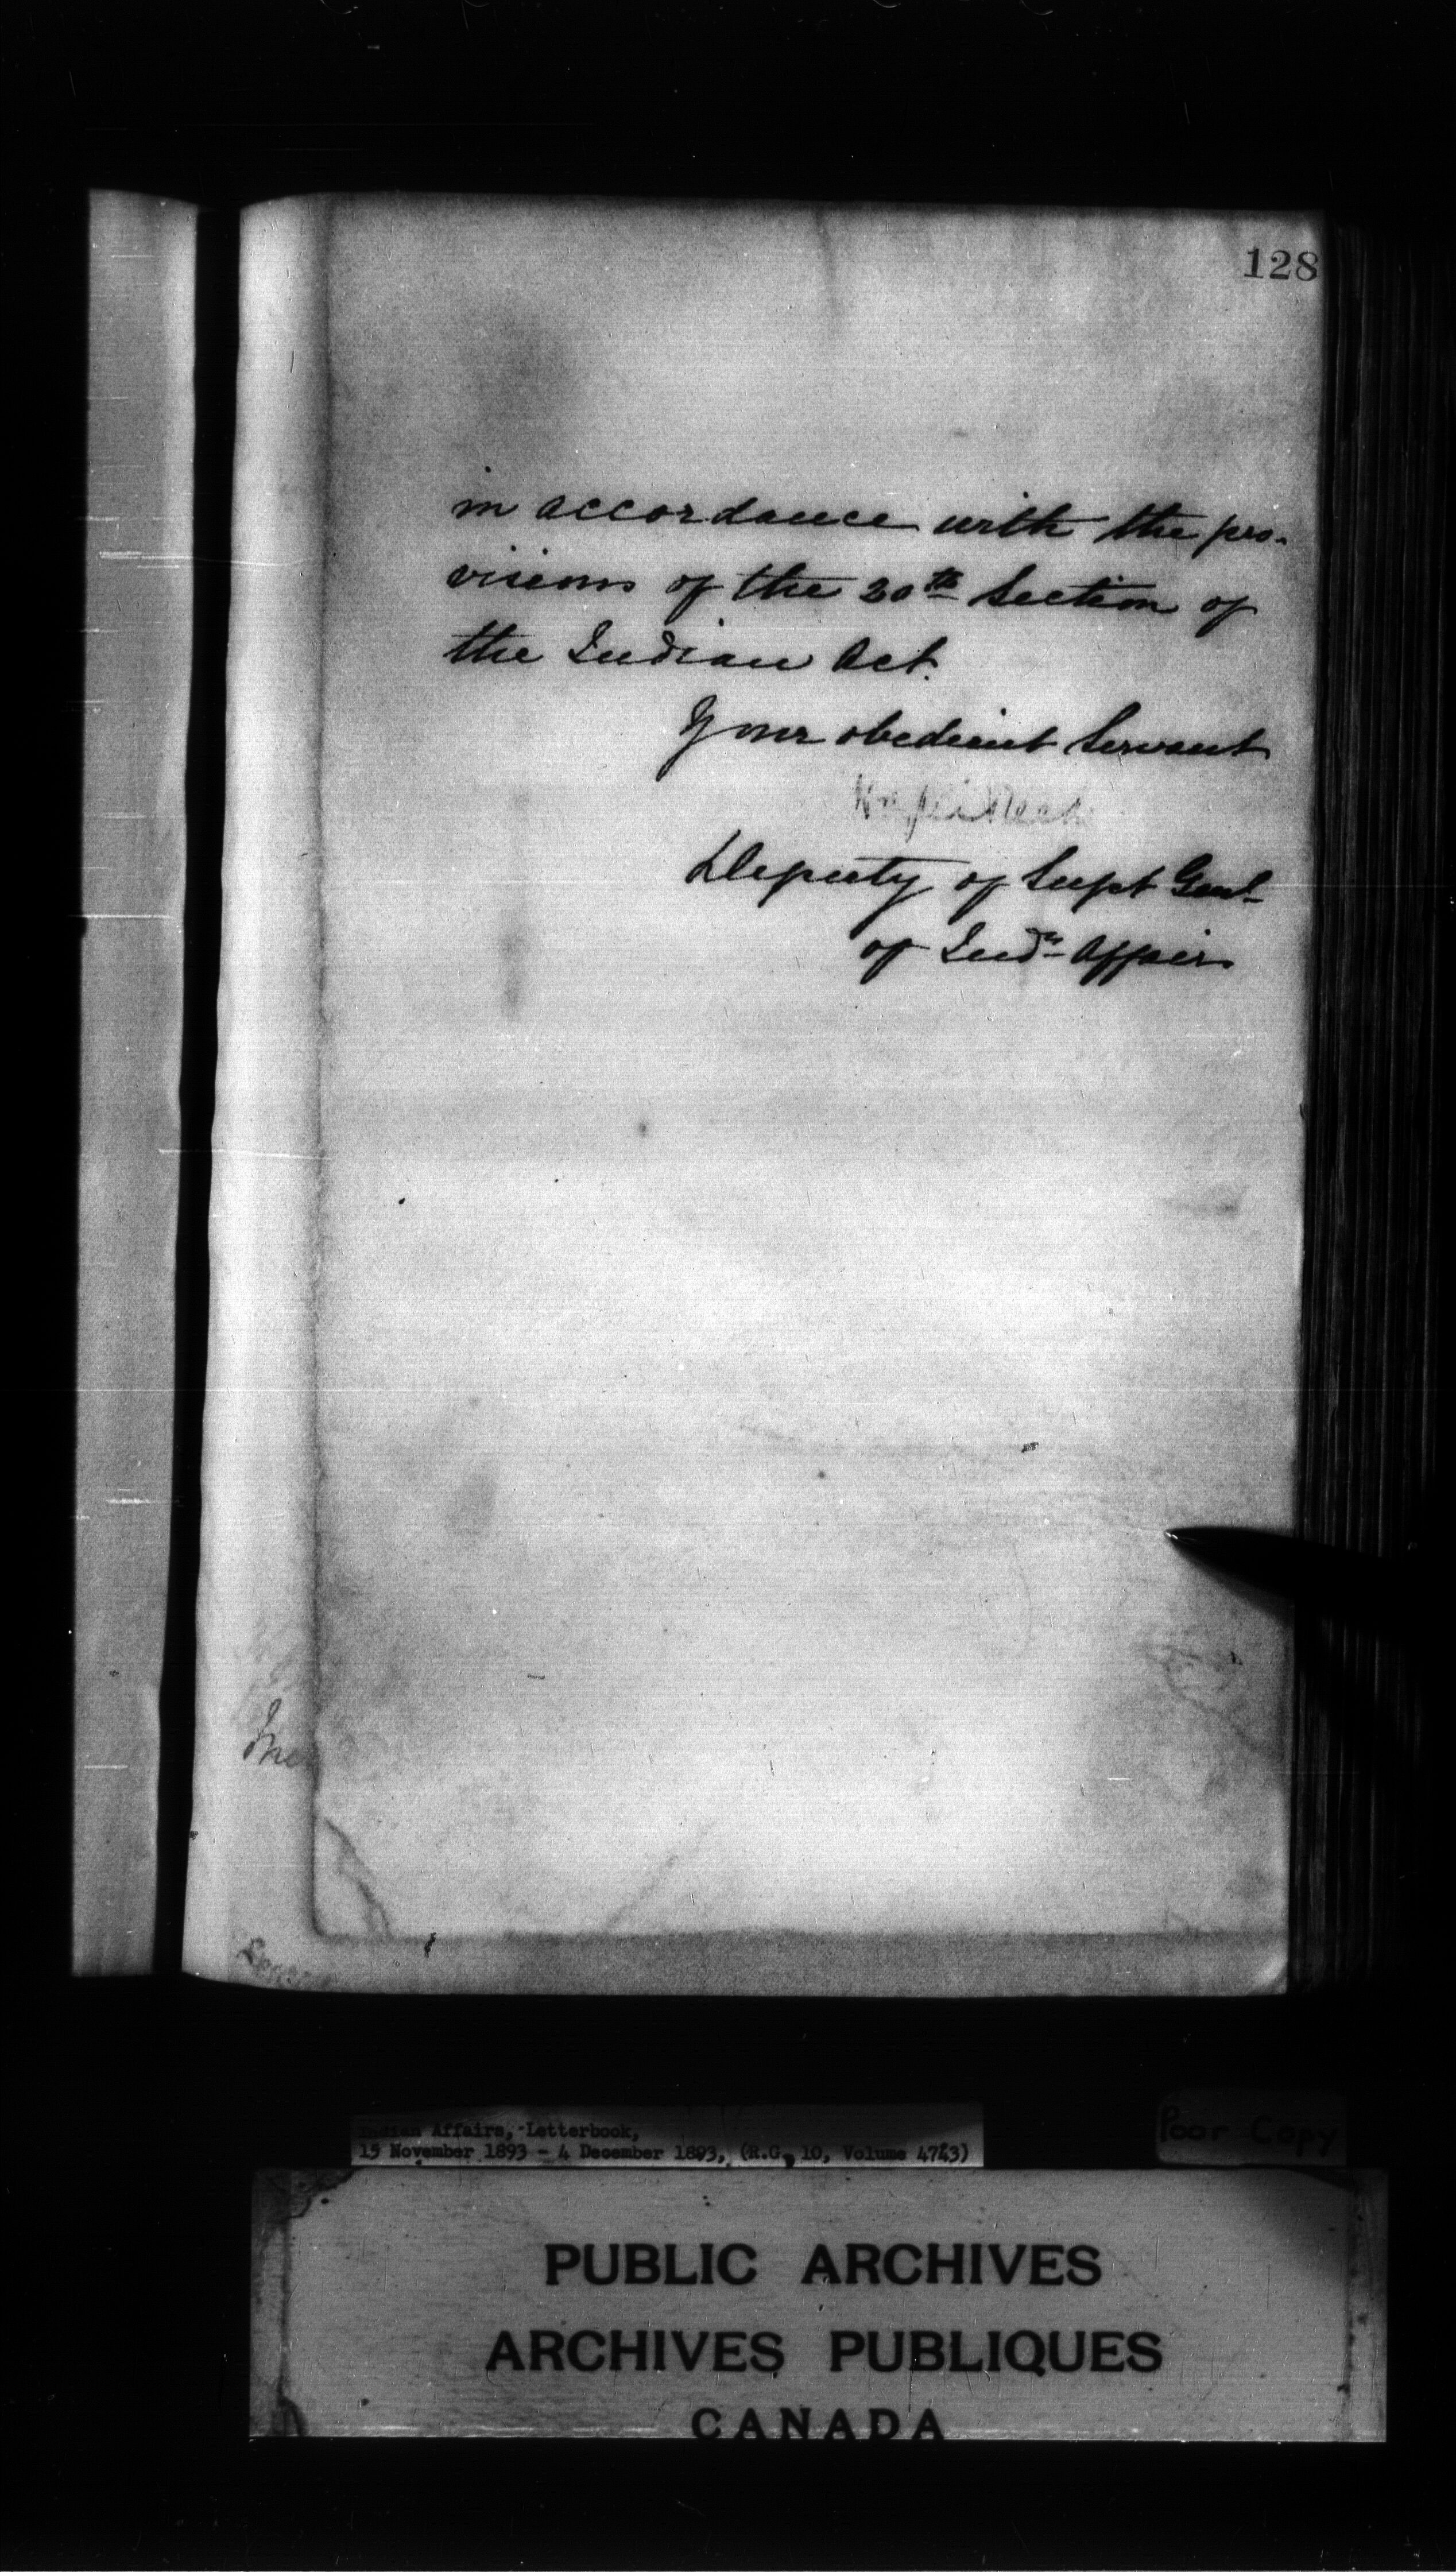 128
in accordance with the pro-
visions of the 20th Section of
the Indian Act.
Your obedient Servant
Deputy of Supt Genl
of Indn Affairs
Indian Affairs, Letterbook,
15 November 1893 - 4 December 1893, (R.G. 10, Volume 4743)
Poor Copy
PUBLIC ARCHIVES
ARCHIVES PUBLIQUES
CANADA